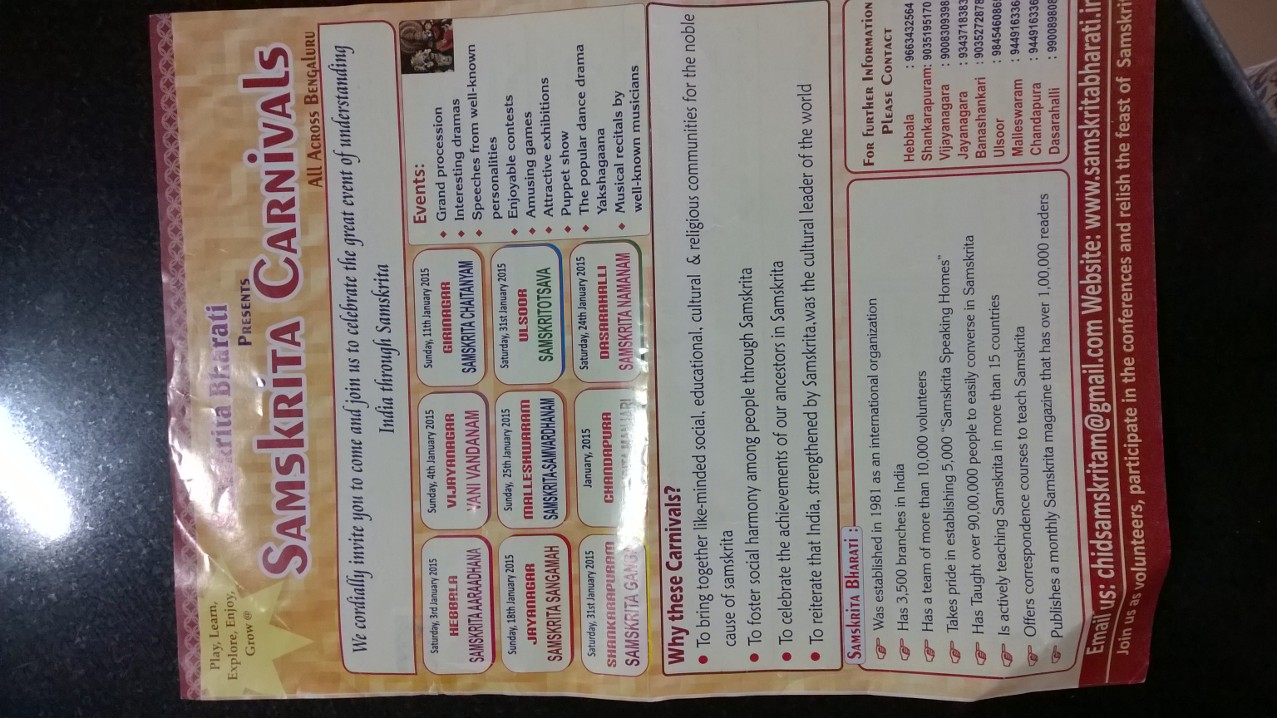 Play, Learn,
Explore, Enjoy,
Grow @
Bharati
PRESENTS
SAMSKRITA CARNIVALS
ALL ACROSS BENGALURU
We cordially invite you to come and join us to celebrate the great event of understanding
India through Samskrita
Saturday, 3rd January 2015
HEBBALA
SAMSKRITA AARAADHANA
Sunday, 4th January 2015
VIJAYANAGAR
VANI VANDANAM
Sunday, 11th January 2015
GIRINAGAR
SAMSKRITA CHAITANYAM
Sunday, 18th January 2015
JAYANAGAR
SAMSKRITA SANGAMAH
Sunday, 25th January 2015
MALLESHWARAM
SAMSKRITA-SAMVARDHANAM
Saturday, 31st January 2015
ULSOOR
SAMSKRITOTSAVA
Saturday, 31st January 2015
SHANKARAPURAM
SAMSKRITA
January, 2015
CHANDAPURA
Saturday, 24th January 2015
DASARAHALLI
SAMSKRITA NAMANAM
Events:
Grand procession
Interesting dramas
Speeches from well-known
personalities
Enjoyable contests
Amusing games
Attractive exhibitions
Puppet show
The popular dance drama
Yakshagaana
Musical recitals by
well-known musicians
Why these Carnivals?
• To bring together like-minded social, educational, cultural & religious communities for the noble
cause of samskrita
• To foster social harmony among people through Samskrita
• To celebrate the achievements of our ancestors in Samskrita
• To reiterate that India, strengthened by Samskrita,was the cultural leader of the world
SAMSKRITA BHARATI :
Was established in 1981 as an international organization
Has 3,500 branches in India
Has a team of more than 10,000 volunteers
Takes pride in establishing 5,000 "Samskrita Speaking Homes"
Has Taught over 90,00,000 people to easily converse in Samskrita
Is actively teaching Samskrita in more than 15 countries
Offers correspondence courses to teach Samskrita
Publishes a monthly Samskrita magazine that has over 1,00,000 readers
FOR FURTHER INFORMATION
PLEASE CONTACT
Hebbala : 9663432564
Shankarapuram: 9035195170
Vijayanagara : 9008309398
Jayanagara : 9343718383
Banashankari : 9035272878
Ulsoor : 984546086
Malleswaram : 944916336
Chandapura : 944916336
Dasarahalli : 990089808
Email us: chidsamskritam@gmail.com Website: www.samskritabharati.in
Join us as volunteers, participate in the conferences and relish the feast of Samskrit